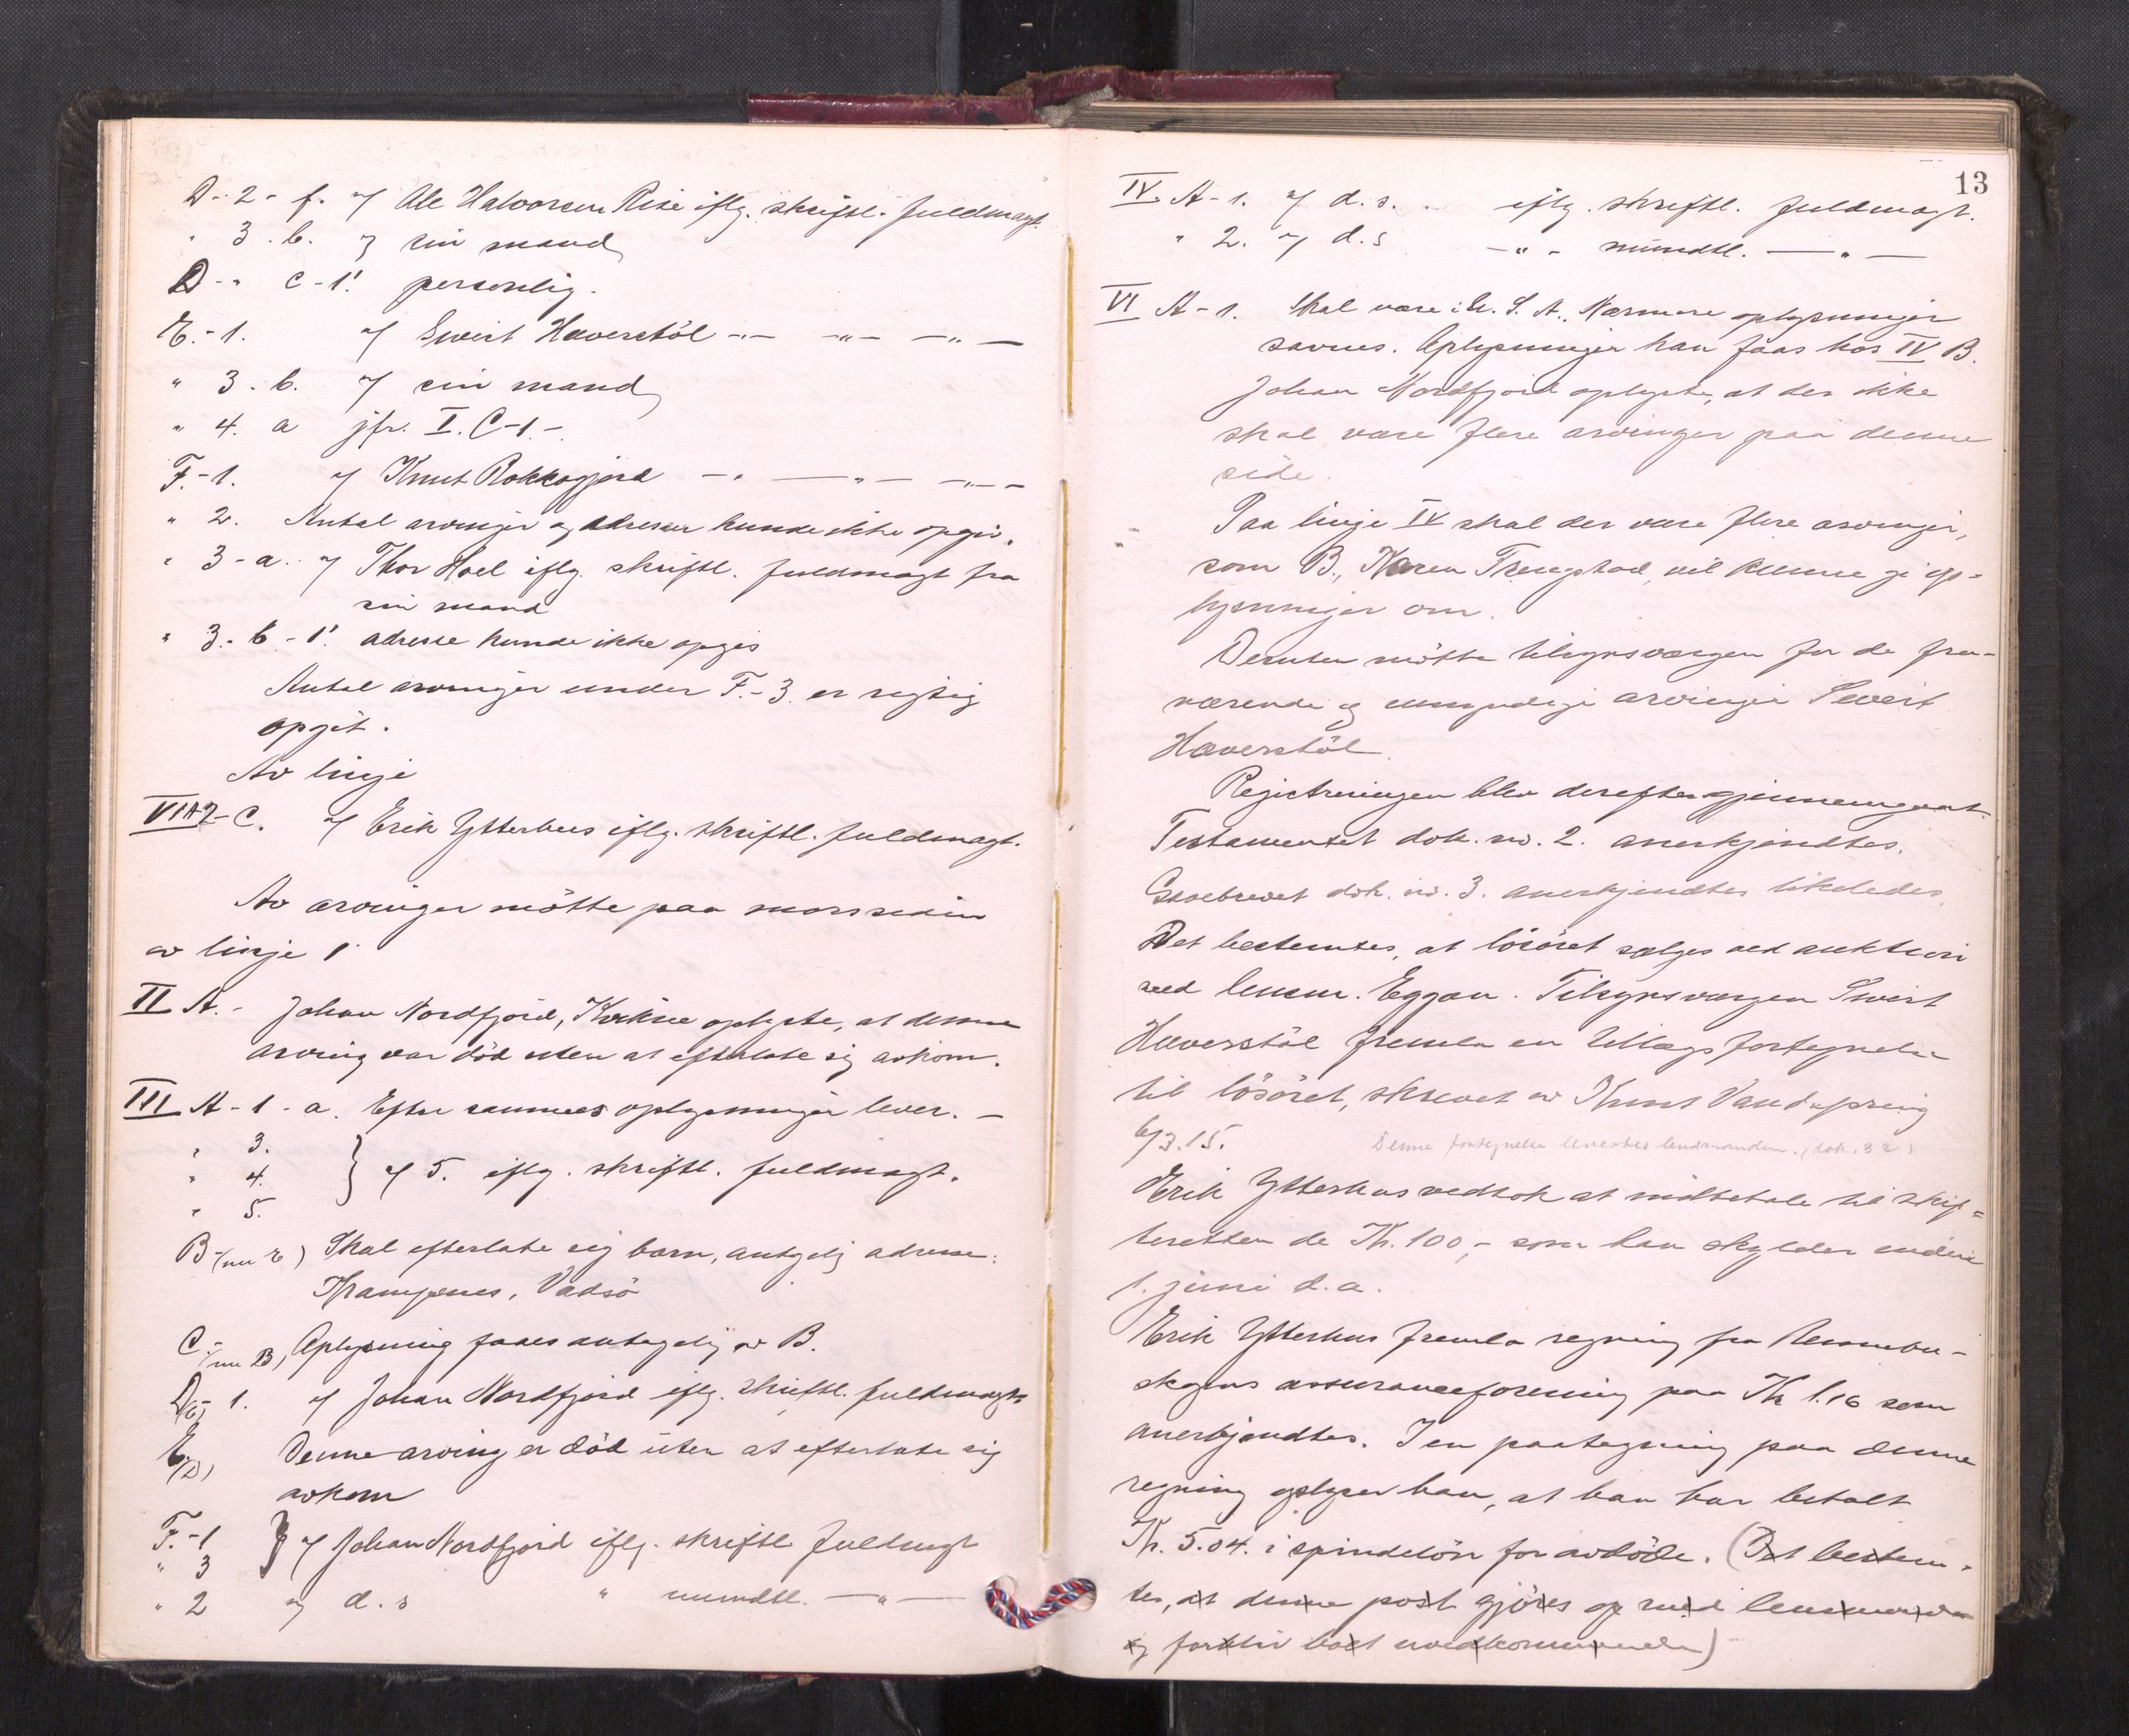 D-2-f. v/ Ole Halvorsen Rise iflg. skriftl. fuldmagt.
" 3.b. v/ sin mand
D-" c-1! personlig.
E.-1. v/ Sivert Haverstöl -"- -"- -"-
" 3.b. v/ sin mand
" 4. a jfr. I.C-1.-.
F.-1. v/ Knut Rokkogjerd -"- -"- -"-
" 2. Antal arvinger og adresser kunde ikke opgis.
" 3-a. v/ Thor Hoel iflg. skriftl. fuldmagt fra
sin mand
" 3.b-1! adresse kunde ikke opgis
Antal arvinger under F.-3. er rigtig
opgit.
Av linje
VI A 2-C. v/ Erik Ytterhus iflg. skriftl. fuldmagt.
Av arvinger mötte paa morssiden
av linje 1
II A.- Johan Nordfjord, oplyste, at denne
arving var död uten at efterlate sig avkom.
III A-1-a. Efter sammes oplysninger lever. -
" 3.
" 4. } v/ 5. iflg. skriftl. fuldmagt.
" 5.
B-(nu E) Skal efterlate sig barn, antagelig adresse:
Krampenes, Vadsö
C-(nu B) Oplysning faaes antagelig av B.
D(C)- 1. v/ Johan Nordfjord iflg. skriftl. fuldmagt
E(D) Denne arving er död uten at efterlate sig
avkom
F.-1
" 3 } v/ Johan Nordfjord iflg. skriftl fuldmagt
" 2 v/ d.s " mundtl. -"-
13
IV. A-1. v/ d.s. iflg. skriftl. fuldmagt.
" 2. v/ d.s -"- mundtl. -"-
VI A-1. Skal være i U.S.A. Nærmere oplysninger
savnes. Oplysninger kan faas hos IV B.
Johan Nordfjord oplyste, at der ikke
skal være flere arvinger paa denne
side.
Paa linje IV skal der være flere arvinger,
som B., Karen vil kunne gi op-
lysninger om.
Desuten mötte tilsynsvergen for de fra-
værende og umyndige arvinger Sivert
Haverstöl.
Registreringen blev derefter gjennemgaat.
Testamentet dok. no. 2. anerkjendtes.
Gavebrevet dok. no. 3. anerkjendtes likeledes.
Det bestemtes, at lösöret sælges ved auktion
ved lensm. Eggan. Tilsynsvergen Sivert
Haverstöl fremla en tillægsfortegnelse
til lösöret, skrevet av Knut Vandspring
6/3.15. Denne fortegnelse leveretes lensmanden. (dok. 32)
Erik Ytterhus vedtok at indbetale til skif-
teretten de Kr. 100,- som han skylder inden
1. juni d.a.
Erik Ytterhus fremla regning fra Rennebu
skogens assuranceforening paa Kr 1.16 som
anerkjendtes. I en paategning paa denne
regning oplyser han, at han har betalt
Kr. 5.04. i spindelön for avdöde. (Det bestem-
tes, at denne post gjöres op med lensmanden
og forøvrig boet uvedkommende)